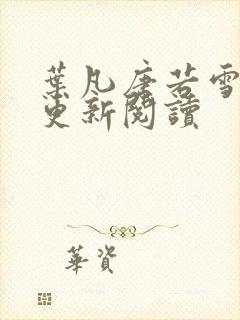 葉凡唐若雪
更新閱讀
華資